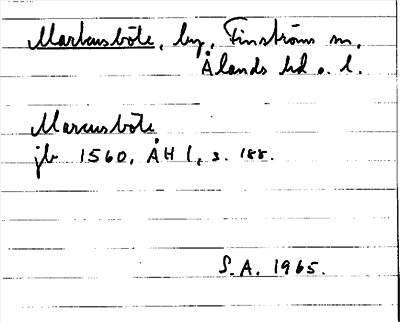 Markusböle, by, Finströms sn,
Ålands hd o. l.
Marcusböle
jb 1560, ÅH 1, s. 188.
S.A. 1965.